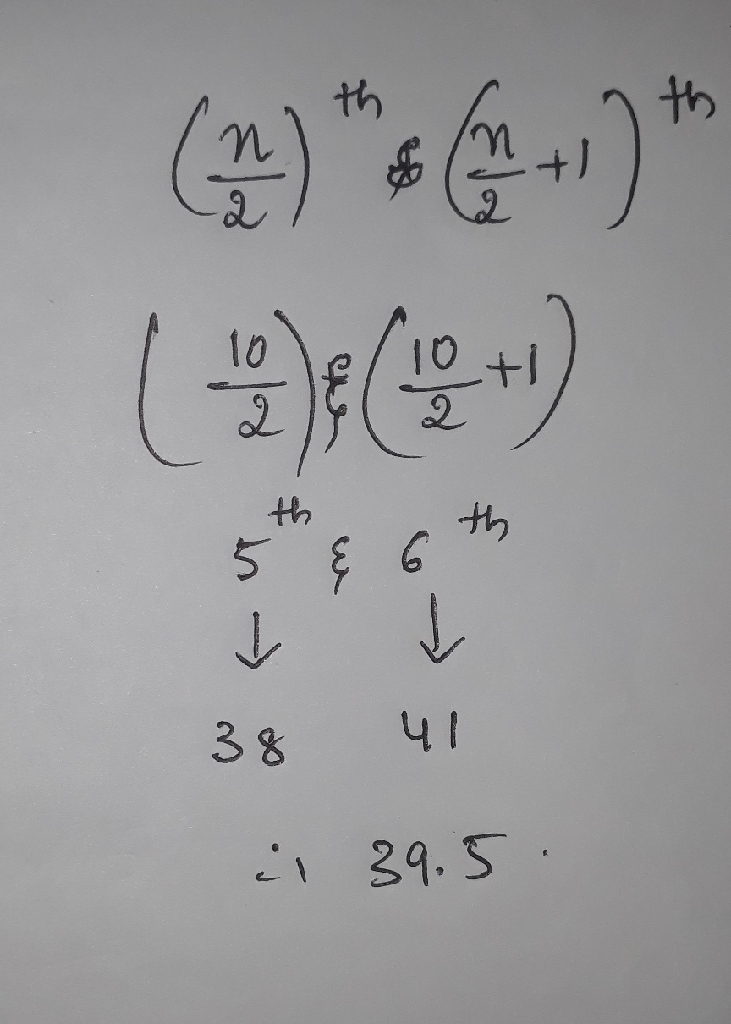 (n/2)th & (n/2 +1)th
(10/2) & (10/2 +1)
5th & 6th
↓ ↓
38 41
∴ 39.5.